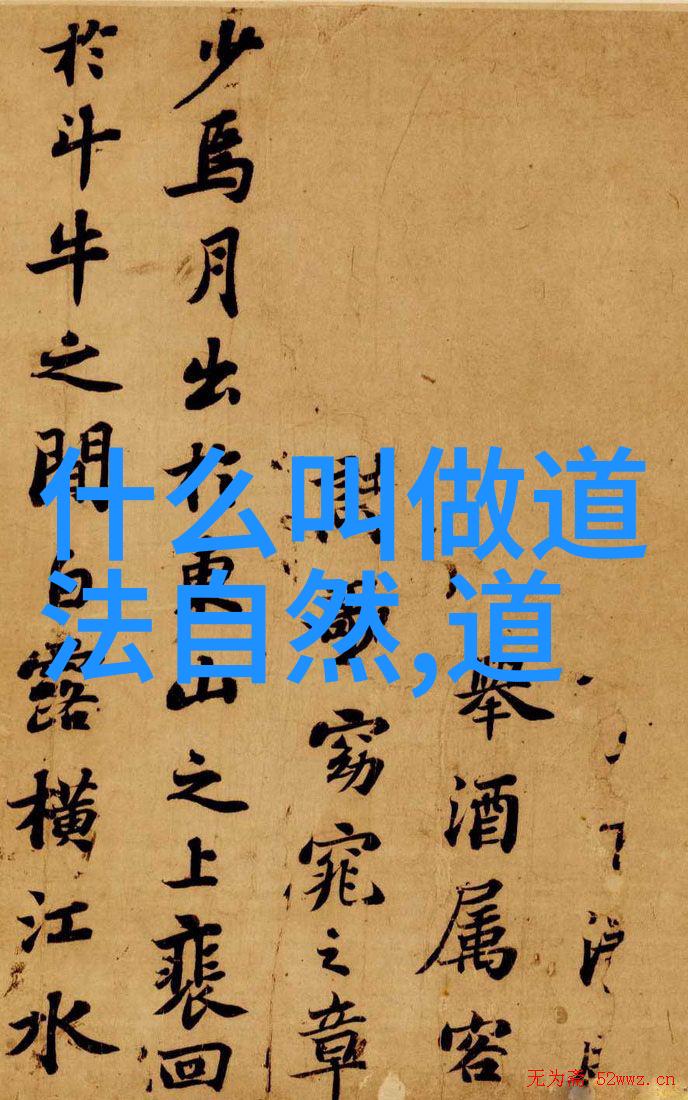 什么叫做道
法自然,道
舉酒属客
窈窕之章
少焉月出於東山之上裵回
於斗牛之間白露橫江水
无为斋 52wwz.cn